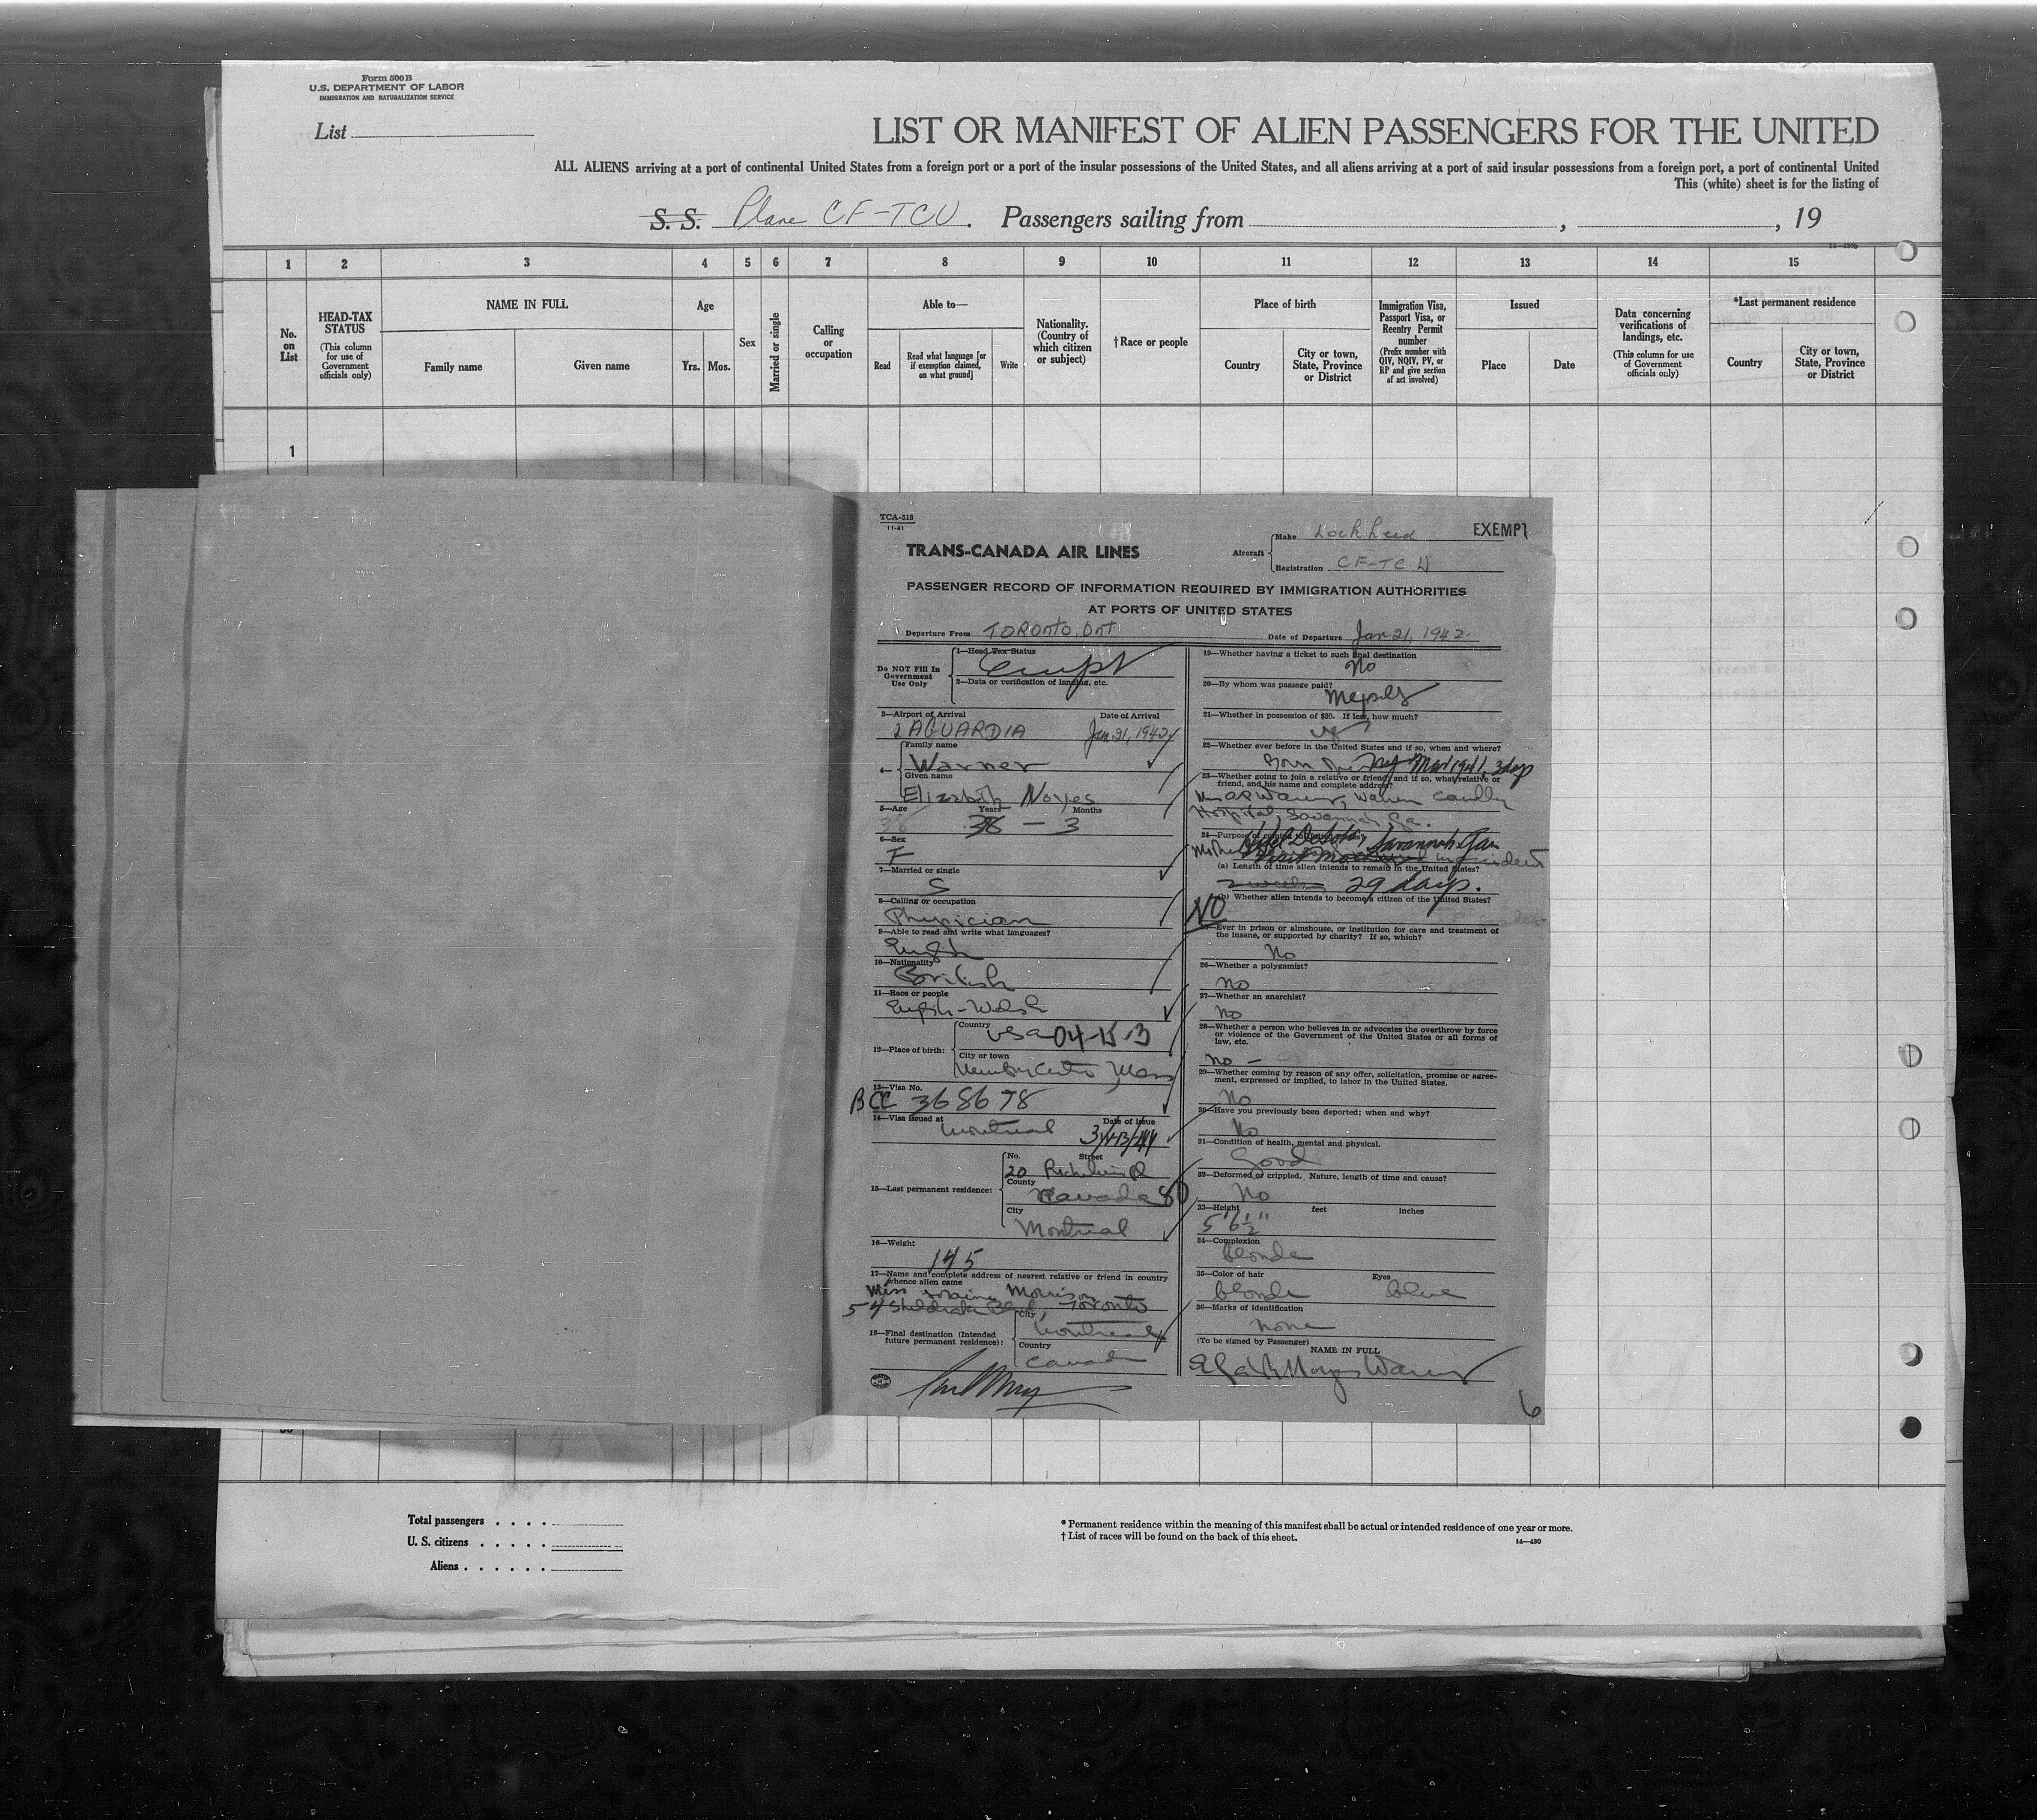 Form 500 B
U.S. DEPARTMENT OF LABOR
IMMIGRATION AND NATURALIZATION SERVICE
List
LIST OR MANIFEST OF ALIEN PASSENGERS FOR THE UNITED
ALL ALIENS arriving at a port of continental United States from a foreign port or a port of the insular possessions of the United States, and all aliens arriving at a port of said insular possessions from a foreign port, a port of continental United
This (white) sheet is for the listing of
S. S. Plane CF-TCU. Passengers sailing from , , 19
1 2 3 4 5 6 7 8 9 10 11 12 13 14 15
No. on List
HEAD-TAX STATUS
(This column for use of Government officials only)
NAME IN FULL
Family name Given name
Age
Yrs. Mos.
Sex
Married or single
Calling or occupation
Able to—
Read
Read what language [or if exemption claimed, on what ground]
Write
Nationality. (Country of which citizen or subject)
†Race or people
Place of birth
Country
City or town, State, Province or District
Immigration Visa, Passport Visa, or Reentry Permit number
(Prefix number with QIV, NQIV, PV, or RP and give section of act involved)
Issued
Place Date
Data concerning verifications of landings, etc.
(This column for use of Government officials only)
*Last permanent residence
Country
City or town, State, Province or District
1
TCA-518
11-41
TRANS-CANADA AIR LINES
Aircraft
Make Lockheed
Registration CF-TC
EXEMPT
PASSENGER RECORD OF INFORMATION REQUIRED BY IMMIGRATION AUTHORITIES
AT PORTS OF UNITED STATES
Departure From TORONTO, Ont
Date of Departure Jan 21, 1942.
Do NOT Fill In Government Use Only
1—Head Tax Status
Exempt
2—Data or verification of landing, etc.
3—Airport of Arrival Date of Arrival
LAGUARDIA Jan 21, 1942
4—
Family name
Warner
Given name
Elizabeth Noyes
5—Age Years Months
38 38 — 3
6—Sex
F
7—Married or single
S
8—Calling or occupation
Physician
9—Able to read and write what languages?
English
10—Nationality
British
11—Race or people
English-Welsh
12—Place of birth:
Country
USA 04-15-3
City or town
Mass
13—Visa No.
BCC 368678
14—Visa issued at Date of issue
Montreal
15—Last permanent residence:
No. Street
20 Richelieu Pl
County
Canada 80
City
Montreal
16—Weight
145
17—Name and complete address of nearest relative or friend in country whence alien came
Miss Lorraine Morrison
54 Sheldrake Blvd, Toronto
18—Final destination (Intended future permanent residence):
City
Montreal
Country
Canada
19—Whether having a ticket to such final destination
No
20—By whom was passage paid?
Myself
21—Whether in possession of $50. If less, how much?
yes
22—Whether ever before in the United States and if so, when and where?
Born NY Mar 1941, 3 days
23—Whether going to join a relative or friend, and if so, what relative or friend, and his name and complete address?
Warner, Warren Candler
Hospital, Savannah, Ga.
24—Purpose of coming to United States?
Mother Hotel DeSoto, Savannah Ga
(a) Length of time alien intends to remain in the United States?
29 days.
(b) Whether alien intends to become a citizen of the United States?
NO
25—Ever in prison or almshouse, or institution for care and treatment of the insane, or supported by charity? If so, which?
No
26—Whether a polygamist?
no
27—Whether an anarchist?
no
28—Whether a person who believes in or advocates the overthrow by force or violence of the Government of the United States or all forms of law, etc.
no —
29—Whether coming by reason of any offer, solicitation, promise or agreement, expressed or implied, to labor in the United States.
No
30—Have you previously been deported; when and why?
No
31—Condition of health, mental and physical.
Good
32—Deformed or crippled. Nature, length of time and cause?
No
33—Height feet inches
5' 6½"
34—Complexion
blonde
35—Color of hair Eyes
blonde blue
36—Marks of identification
none
(To be signed by Passenger) NAME IN FULL
Elizabeth Noyes Warner
6
Total passengers . . . .
U. S. citizens . . . . .
Aliens . . . . . .
* Permanent residence within the meaning of this manifest shall be actual or intended residence of one year or more.
† List of races will be found on the back of this sheet.
14—430